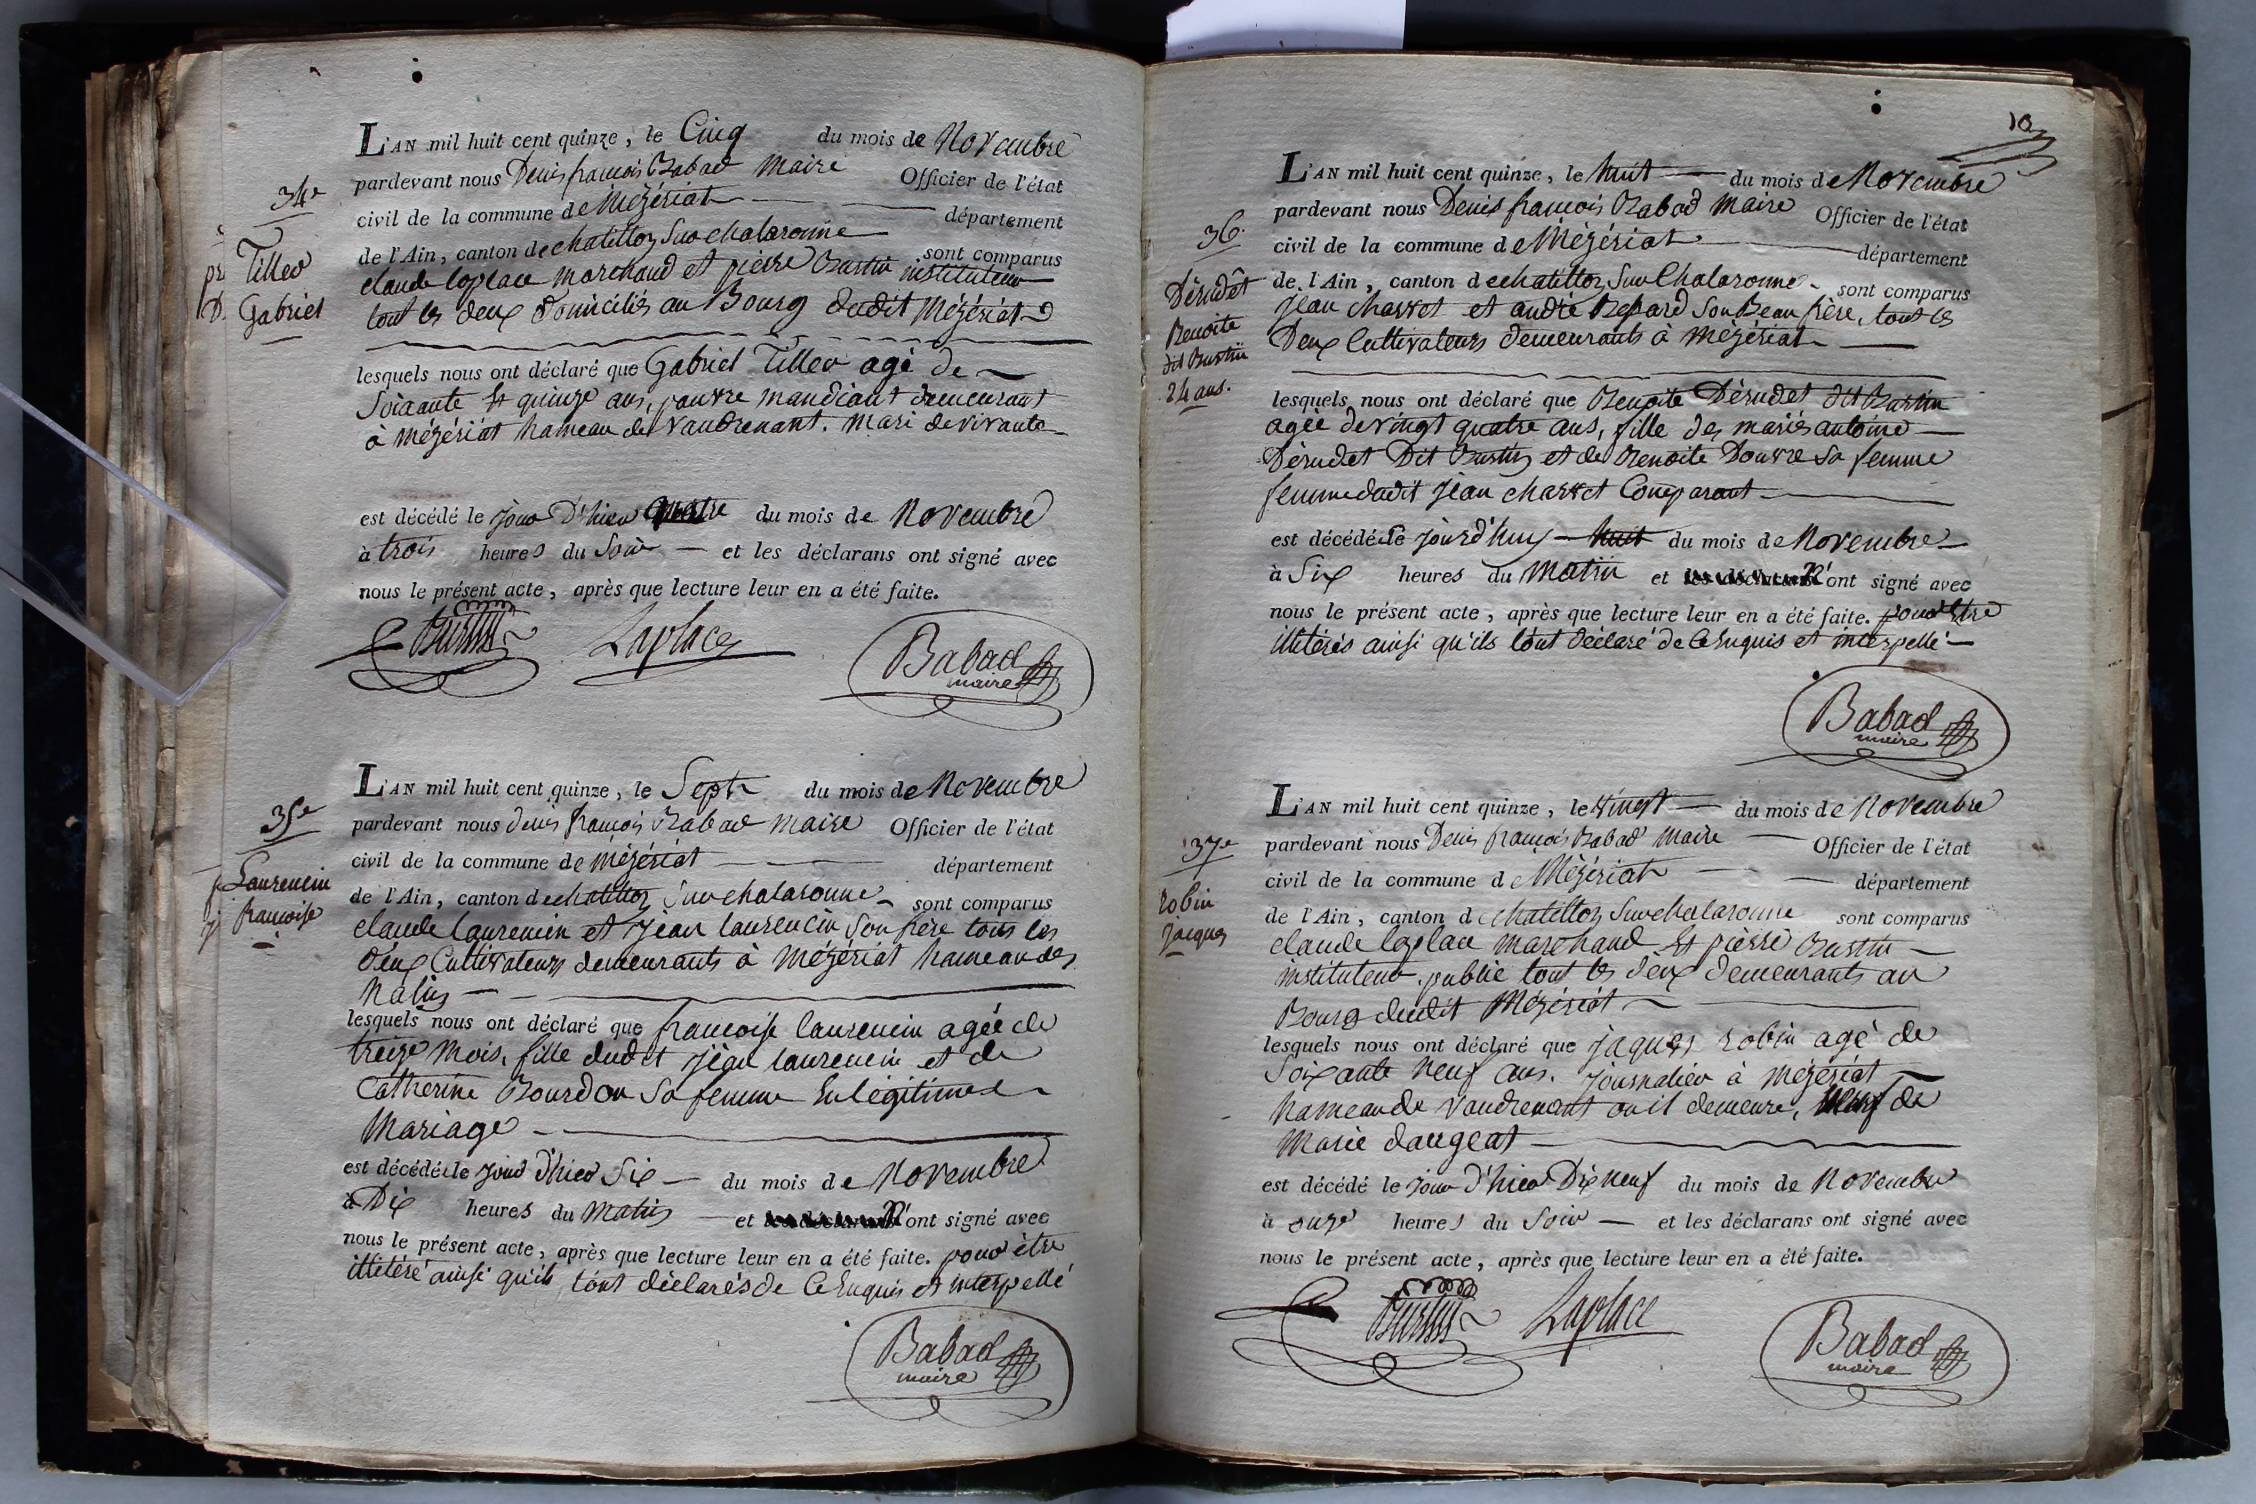 34e
Tiller
Gabriel
L'AN mil huit cent quinze, le Cinq du mois de Novembre
pardevant nous Denis françois Babad Maire Officier de l'état
civil de la commune de Mézériat département
de l'Ain, canton de chatillon Sur chalaronne sont comparus
claude laplace marchand et pierre Burtin instituteur
tout les deux domiciliés au Bourg dudit Mézériat
lesquels nous ont déclaré que Gabriel Tiller agé de
Soixante Et quinze ans, pauvre mandiant demeurant
à Mézériat hameau de Vaudrenant. Mari de vivante
est décédé le jour D'hier quatre du mois de Novembre
à trois heures du Soir et les déclarans ont signé avec
nous le présent acte, après que lecture leur en a été faite.
Burtin Laplace Babad
maire
35e
Laurencin
françoise
L'AN mil huit cent quinze, le Sept du mois de Novembre
pardevant nous denis françois Babad Maire Officier de l'état
civil de la commune de Mézériat département
de l'Ain, canton de chatillon Sur chalaronne sont comparus
claude laurencin et jean laurencin Son frère tous les
deux Cultivateurs demeurants à Mézériat hameau des
lesquels nous ont déclaré que françoise laurencin agée de
treize Mois, fille dudit jean laurencin et de
Catherine Bourdon Sa femme En légitime
Mariage
est décédée le jour d'hier Six du mois de Novembre
à Dix heures du Matin et N'ont signé avec
nous le présent acte, après que lecture leur en a été faite. pour être
illitéré ainsi qu'ils l'ont déclarés de Ce Enquis et interpellé
Babad
maire
10
36e
Dérudet
Benoite
dit Burtin
24 ans.
L'AN mil huit cent quinze, le huit du mois de Novembre
pardevant nous Denis françois Babad Maire Officier de l'état
civil de la commune de Mézériat département
de l'Ain, canton de chatillon Sur Chalaronne sont comparus
jean charvet et andré Son Beau frère, tout les
Deux Cultivateurs demeurants à Mézériat
lesquels nous ont déclaré que Benoite Dérudet dit Burtin
agée de vingt quatre ans, fille des mariés antoine
Dérudet Dit Burtin et de Benoite Douvre Sa femme
femme dudit jean charvet Comparant
est décédée le jourd'huy huit du mois de Novembre
à Six heures du Matin et N'ont signé avec
nous le présent acte, après que lecture leur en a été faite. pour être
illitérés ainsi qu'ils l'ont déclaré de Ce Enquis et interpellé
Babad
maire
37e
robin
jacques
L'AN mil huit cent quinze, le Vingt du mois de Novembre
pardevant nous Denis françois Babad Maire Officier de l'état
civil de la commune de Mézériat département
de l'Ain, canton de chatillon Sur chalaronne sont comparus
claude laplace marchand Et pierre Burtin
instituteur public tout les deux demeurants au
Bourg dudit Mézériat
lesquels nous ont déclaré que jaques robin agé de
Soixante Neuf ans. journalier à Mézériat
hameau de Vaudrenant ou il demeure, Veuf de
Marie daugeat
est décédé le jour d'hier Dix neuf du mois de Novembre
à onze heures du Soir et les déclarans ont signé avec
nous le présent acte, après que lecture leur en a été faite.
Burtin Laplace Babad
maire